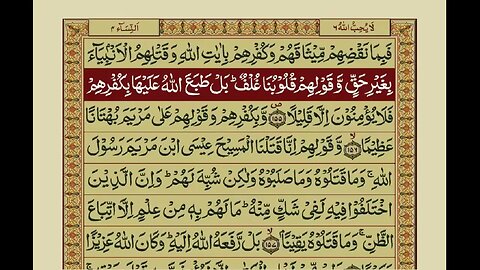 لَا يُحِبُّ اللّٰهُ ٦ اَلنِّسَآء ٤
فَبِمَا نَقْضِهِمْ مِّيْثَاقَهُمْ وَكُفْرِهِمْ بِاٰيٰتِ اللّٰهِ وَقَتْلِهِمُ الْاَنْۢبِيَآءَ
بِغَيْرِ حَقٍّ وَّقَوْلِهِمْ قُلُوْبُنَا غُلْفٌ ؕ بَلْ طَبَعَ اللّٰهُ عَلَيْهَا بِكُفْرِهِمْ
فَلَا يُؤْمِنُوْنَ اِلَّا قَلِيْلًا ۪﴿١٥٥﴾ وَّبِكُفْرِهِمْ وَقَوْلِهِمْ عَلٰى مَرْيَمَ بُهْتَانًا
عَظِيْمًا ۙ﴿١٥٦﴾ وَّقَوْلِهِمْ اِنَّا قَتَلْنَا الْمَسِيْحَ عِيْسَى ابْنَ مَرْيَمَ رَسُوْلَ
اللّٰهِ ۚ وَمَا قَتَلُوْهُ وَمَا صَلَبُوْهُ وَلٰكِنْ شُبِّهَ لَهُمْ ؕ وَاِنَّ الَّذِيْنَ
اخْتَلَفُوْا فِيْهِ لَفِيْ شَكٍّ مِّنْهُ ؕ مَا لَهُمْ بِهٖ مِنْ عِلْمٍ اِلَّا اتِّبَاعَ
الظَّنِّ ۚ وَمَا قَتَلُوْهُ يَقِيْنًۢا ۙ﴿١٥٧﴾ بَلْ رَّفَعَهُ اللّٰهُ اِلَيْهِ ؕ وَكَانَ اللّٰهُ عَزِيْزًا